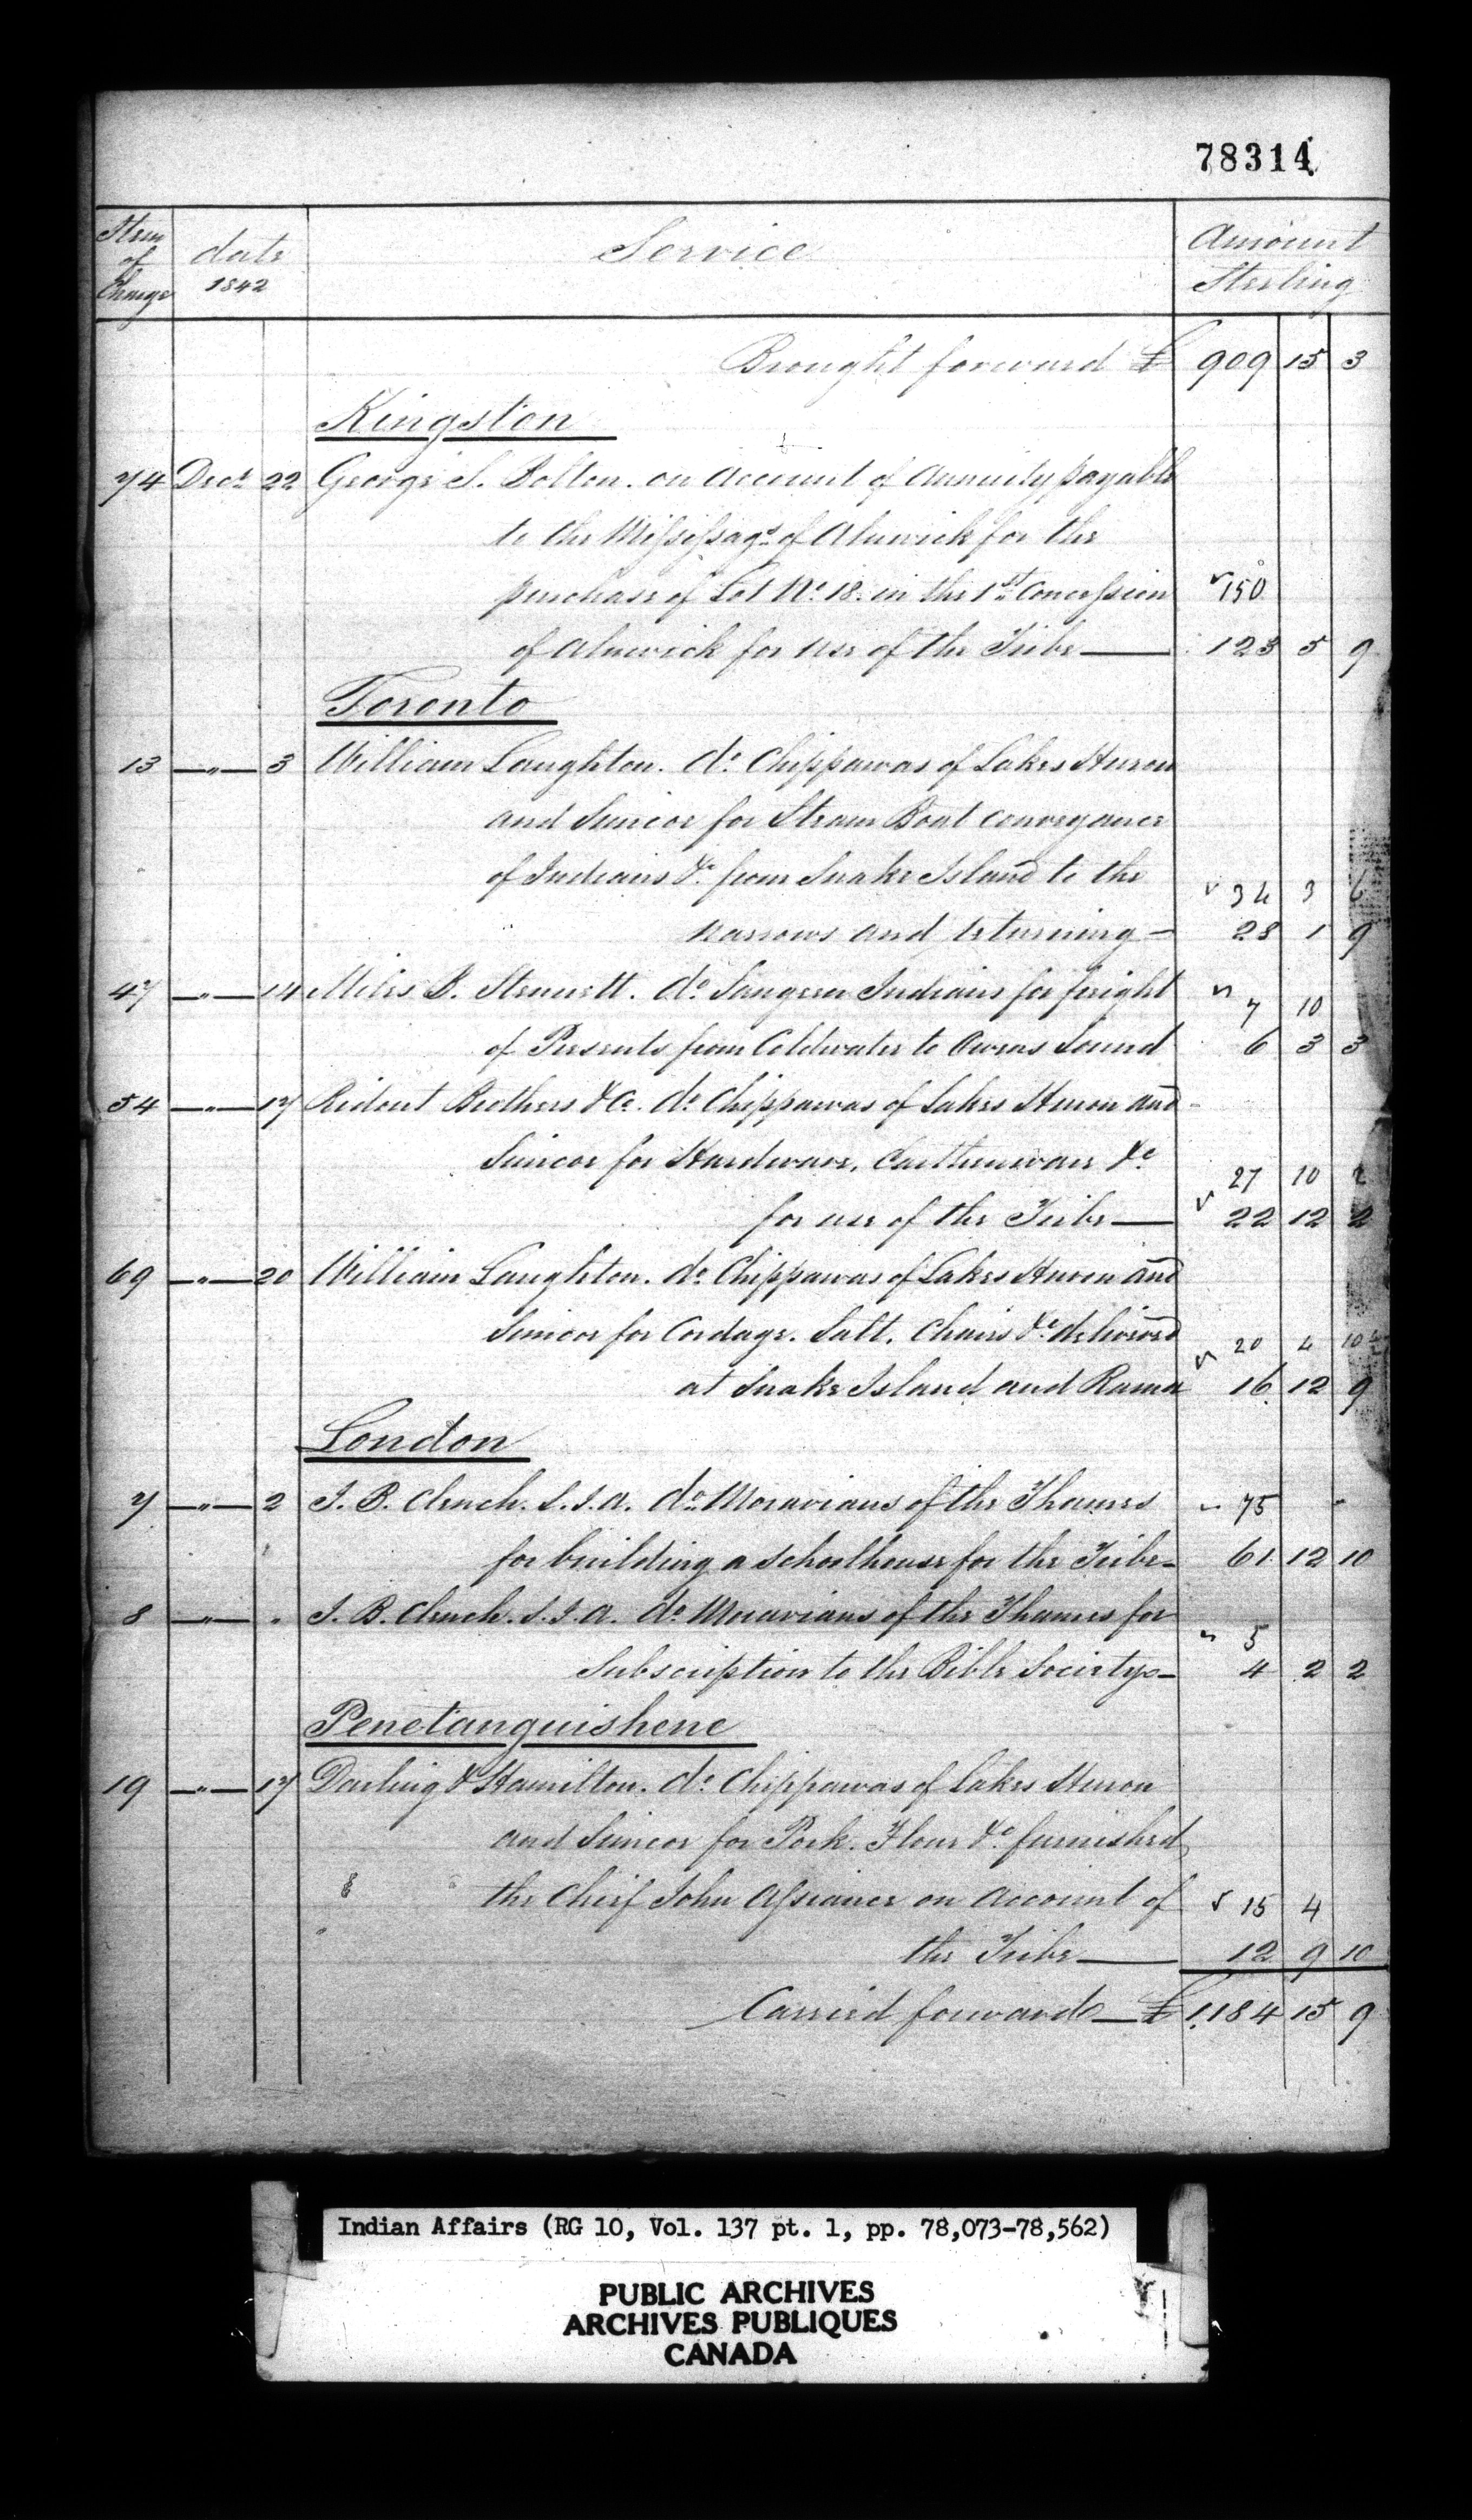 78314
Item of Charge
date 1842
Service
Amount Sterling
Brought forward £ 909 15 3
Kingston
74 Decr 22 George S. Bolton. on Account of Annuity payable
to the Missisags of Alnwick for the
purchase of Lot No. 18. in the 1st Concession 150
of Alnwick for use of the Tribe 123 5 9
Toronto
13 " 3 William Laughton. do Chippawas of Lakes Huron
and Simcoe for Steam Boat conveyance
of Indians &c from Snake Island to the 34 3 6
narrows and returning 28 1 9
47 " 14 Miles B. do Saugeen Indians for freight 7 10
of Presents from Coldwater to Owens Sound 6 3 3
54 " 17 Ridout Brothers & Co. do Chippawas of Lakes Huron and
Simcoe for Hardware, Earthenware &c 27 10 2
for use of the Tribe 22 12 2
69 " 20 William Laughton. do Chippawas of Lakes Huron and
Simcoe for Cordage. Salt. Chairs &c delivered 20 4 10
at Snake Island and Rama 16 12 9
London
7 " 2 J. B. Clench. S.I.A. do Moravians of the Thames 75
for building a schoolhouse for the Tribe 61 12 10
8 " " J. B. Clench. S.I.A. do Moravians of the Thames for 5
Subscription to the Bible Society 4 2 2
Penetanguishene
19 " 17 Darling & Hamilton. do Chippawas of Lakes Huron
and Simcoe for Pork. Flour &c furnished
the Chief John Assiance on Account of 15 4
the Tribe 12 9 10
Carried forward £ 1,184 15 9
Indian Affairs (RG 10, Vol. 137 pt. 1, pp. 78,073-78,562)
PUBLIC ARCHIVES
ARCHIVES PUBLIQUES
CANADA